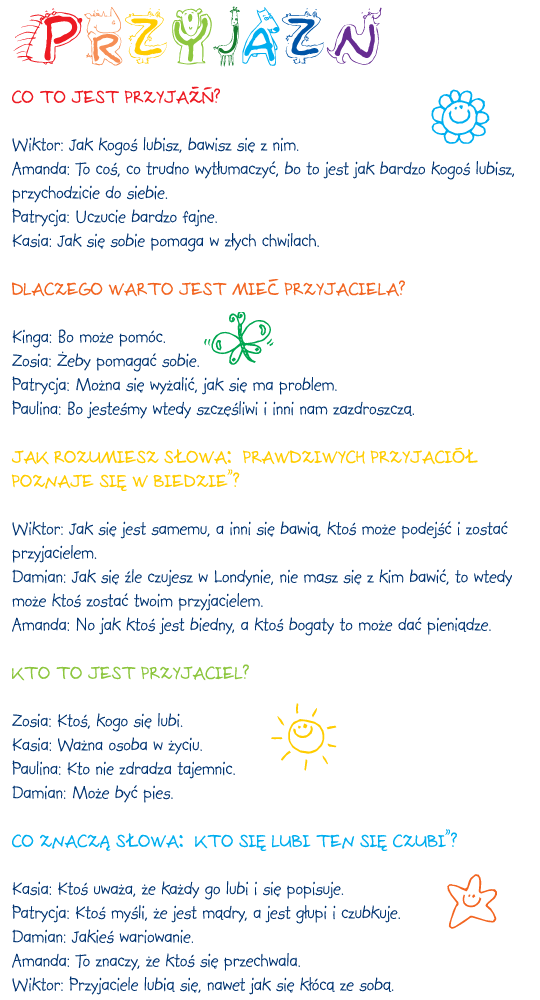 PRZYJAŹN
CO TO JEST PRZYJAŹŃ?
Wiktor: Jak kogoś lubisz, bawisz się z nim.
Amanda: To coś, co trudno wytłumaczyć, bo to jest jak bardzo kogoś lubisz,
przychodzicie do siebie.
Patrycja: Uczucie bardzo fajne.
Kasia: Jak się sobie pomaga w złych chwilach.
DLACZEGO WARTO JEST MIEĆ PRZYJACIELA?
Kinga: Bo może pomóc.
Zosia: Żeby pomagać sobie.
Patrycja: Można się wyżalić, jak się ma problem.
Paulina: Bo jesteśmy wtedy szczęśliwi i inni nam zazdroszczą.
JAK ROZUMIESZ SŁOWA: PRAWDZIWYCH PRZYJACIÓŁ
POZNAJE SIĘ W BIEDZIE”?
Wiktor: Jak się jest samemu, a inni się bawią, ktoś może podejść i zostać
przyjacielem.
Damian: Jak się źle czujesz w Londynie, nie masz się z kim bawić, to wtedy
może ktoś zostać twoim przyjacielem.
Amanda: No jak ktoś jest biedny, a ktoś bogaty to może dać pieniądze.
KTO TO JEST PRZYJACIEL?
Zosia: Ktoś, kogo się lubi.
Kasia: Ważna osoba w życiu.
Paulina: Kto nie zdradza tajemnic.
Damian: Może być pies.
CO ZNACZĄ SŁOWA: KTO SIĘ LUBI TEN SIĘ CZUBI”?
Kasia: Ktoś uważa, że każdy go lubi i się popisuje.
Patrycja: Ktoś myśli, że jest mądry, a jest głupi i czubkuje.
Damian: Jakieś wariowanie.
Amanda: To znaczy, że ktoś się przechwala.
Wiktor: Przyjaciele lubią się, nawet jak się kłócą ze sobą.